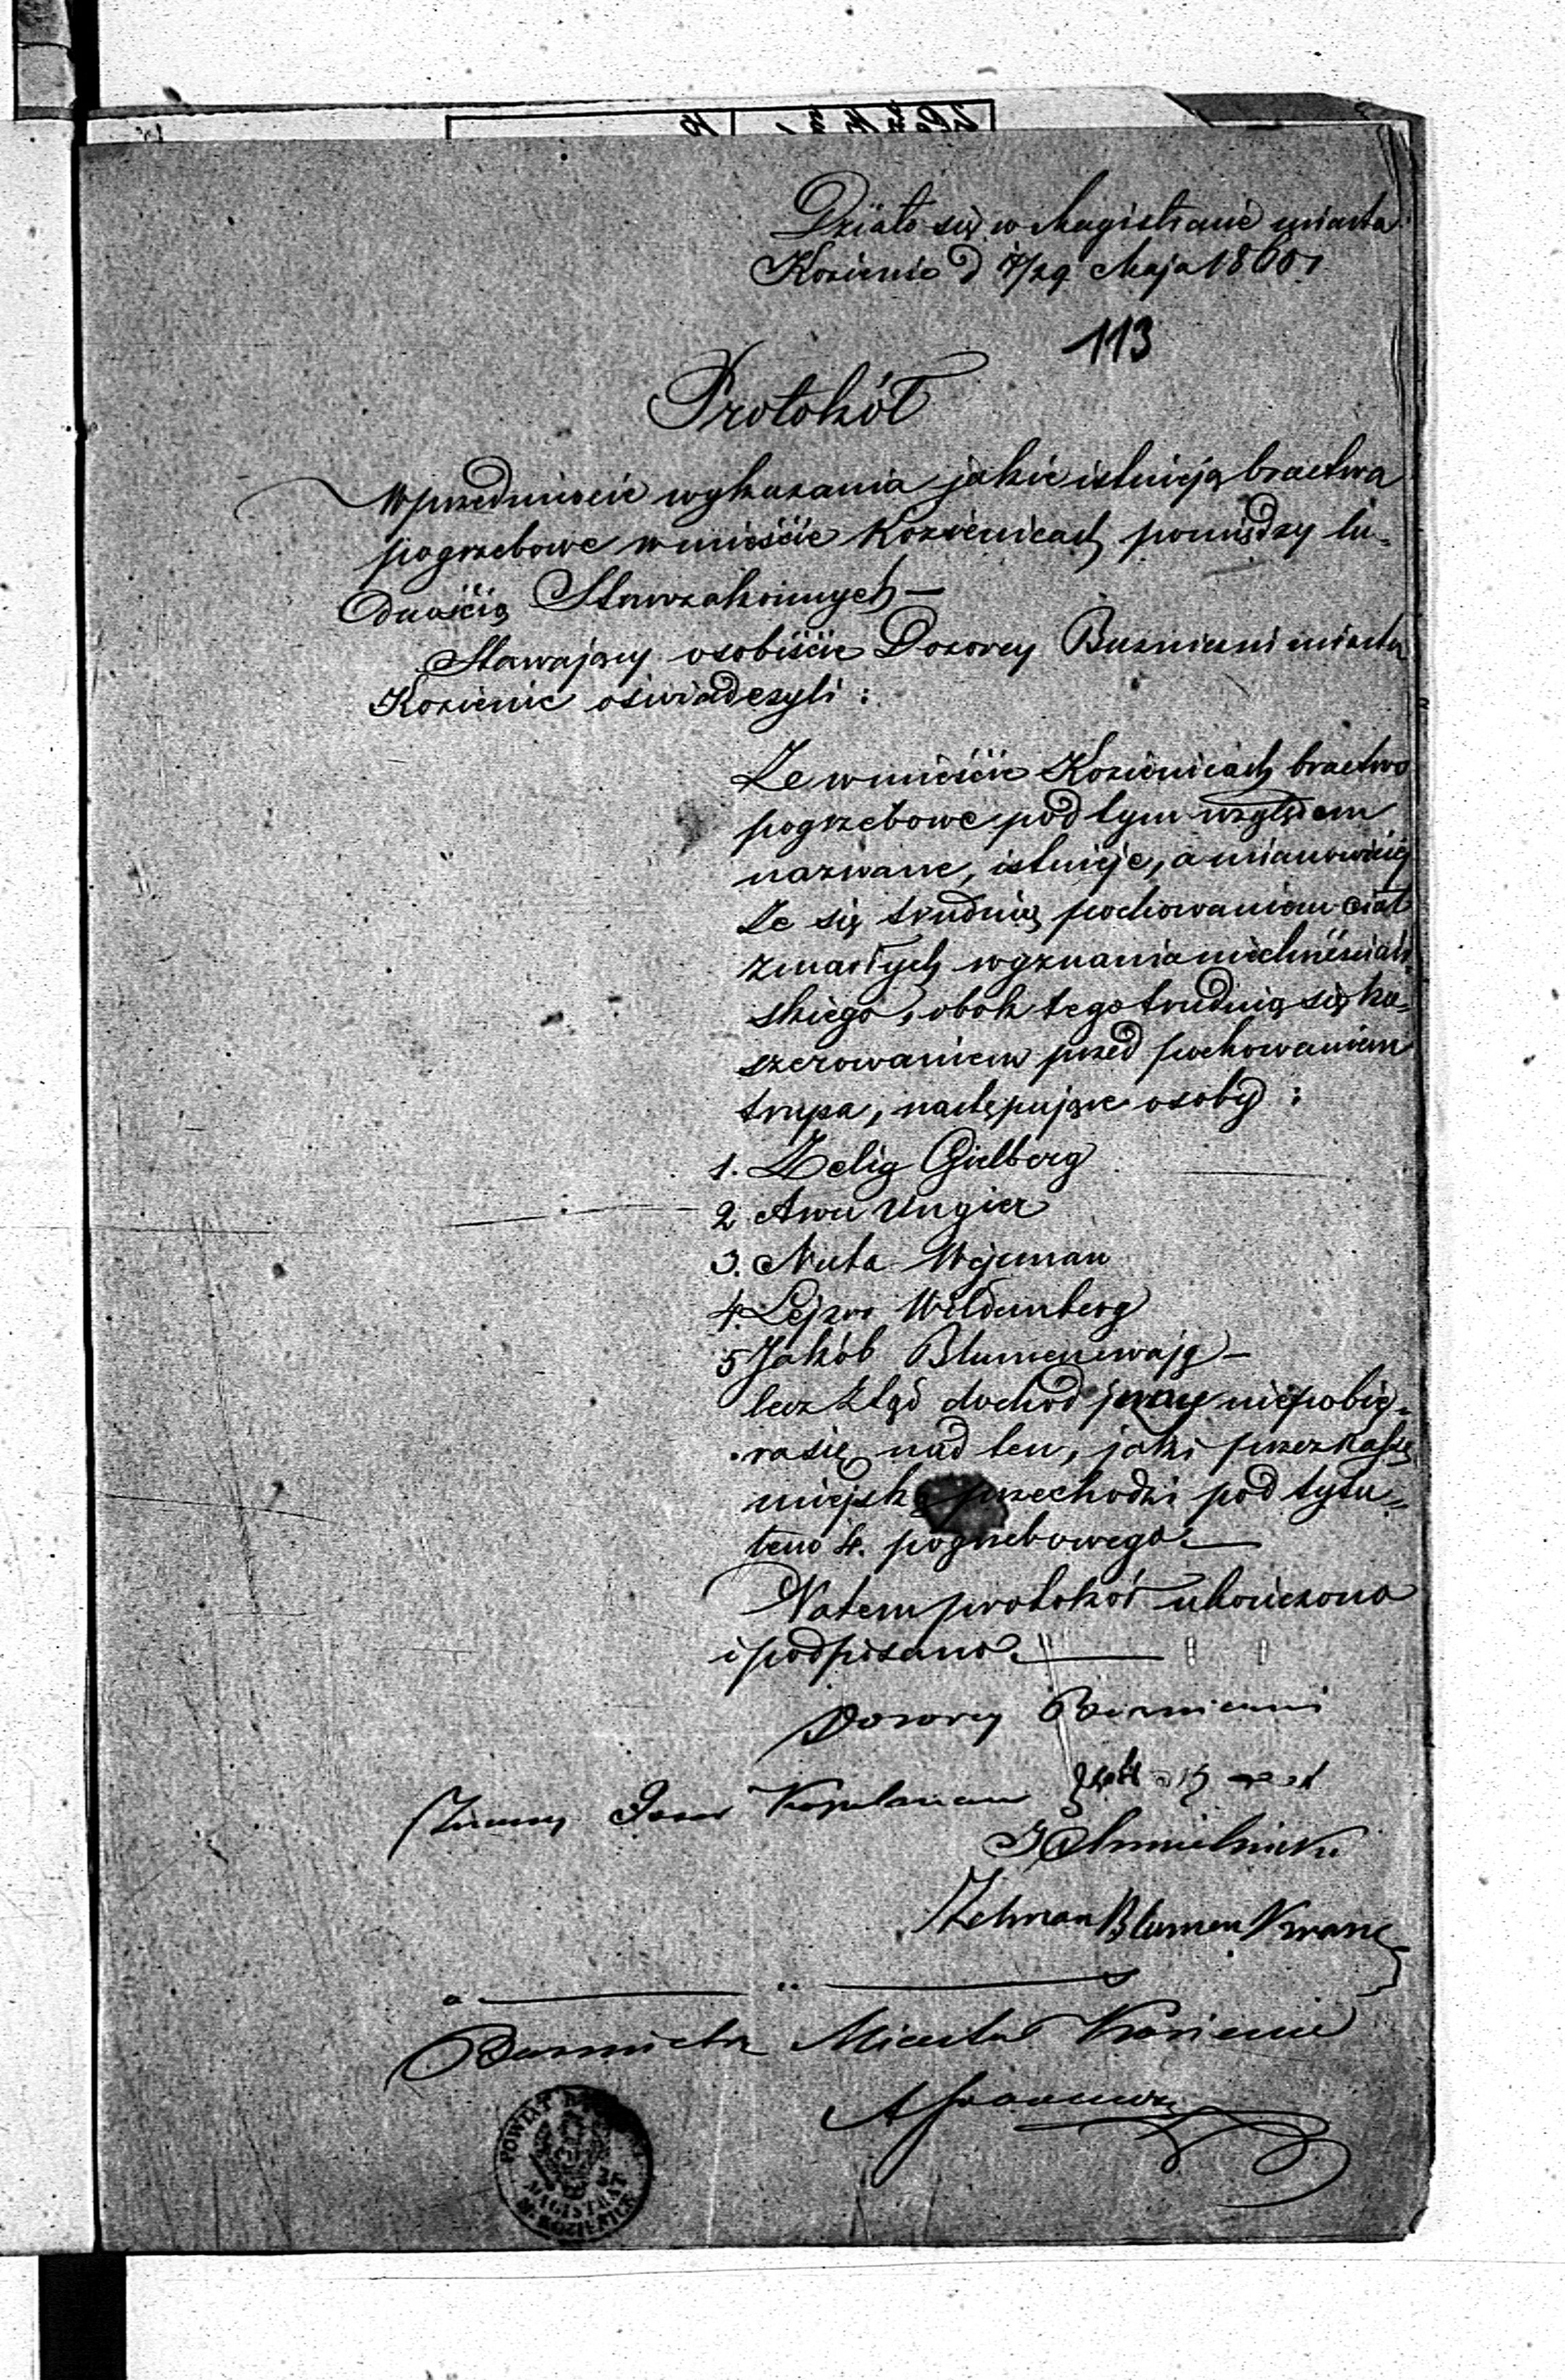 Działo się w Magistracie miasta
Kozienic d 17/29 Maja 1860 r
113
Protokół
W przedmiocie wykazania jakie istnieją bractwa
pogrzebowe w mieście Kozienicach pomiędzy lu-
dnością Starozakonnych —
Stawający osobiście Dozorcy Bużniczni miasta
Kozienic oświadczyli :
Że w mieście Kozienicach bractwo
pogrzebowe pod tym względem
nazwane, istnieje, a mianowicie
że się trudnią pochowaniem ciał
zmarłych wyznania niechrześciań-
skiego, obok tego trudnią się ko-
szerowaniem przed pochowaniem
trupa, następujące osoby :
1. Zelig Gielberg
2 Awu Ungier
3. Nuta Wejeman
4. Lejzor Weldenberg
5 Jakób Blumen —
lecz ztąd dochod niepobie-
ra się nad ten, jaki przez kassę
miejską przechodzi pod tytu-
łem pogrzebowego —
Na tem protokół ukończono
i podpisano —
Dozorcy Bużniczni
Josor Kopelman
J Chmielnicki
Zelman Blumen Kranc
Burmistrz Miasta Kozienic
POWIAT
MAGISTRAT
M. KOZIENICE